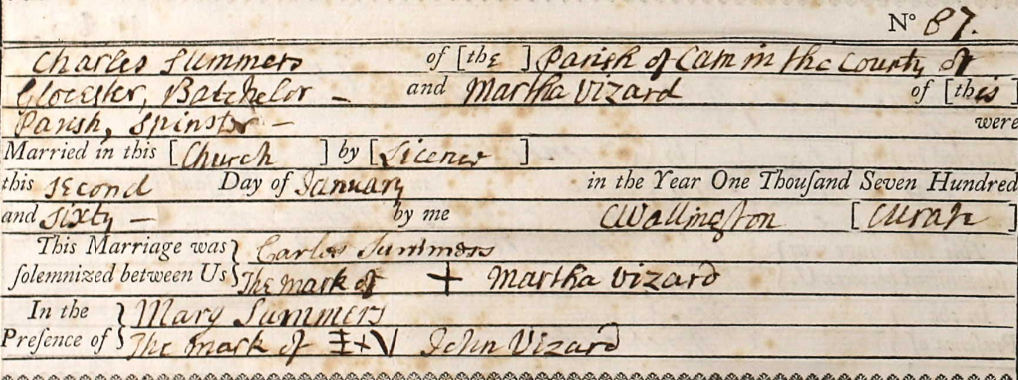 No 87.
Charles Summers of [the ] Parish of Cam in the County of
Glocester, Batchelor - and Martha Vizard of [this]
Parish, Spinster - were
Married in this [Church ] by [Licence ]
this Second Day of January in the Year One Thouſand Seven Hundred
and Sixty - by me CWallington [Curate ]
This Marriage was
ſolemnized between Us } Carles Summers
The Mark of + Martha Vizard
In the
Preſence of } Mary Summers
The mark of I+V John Vizard